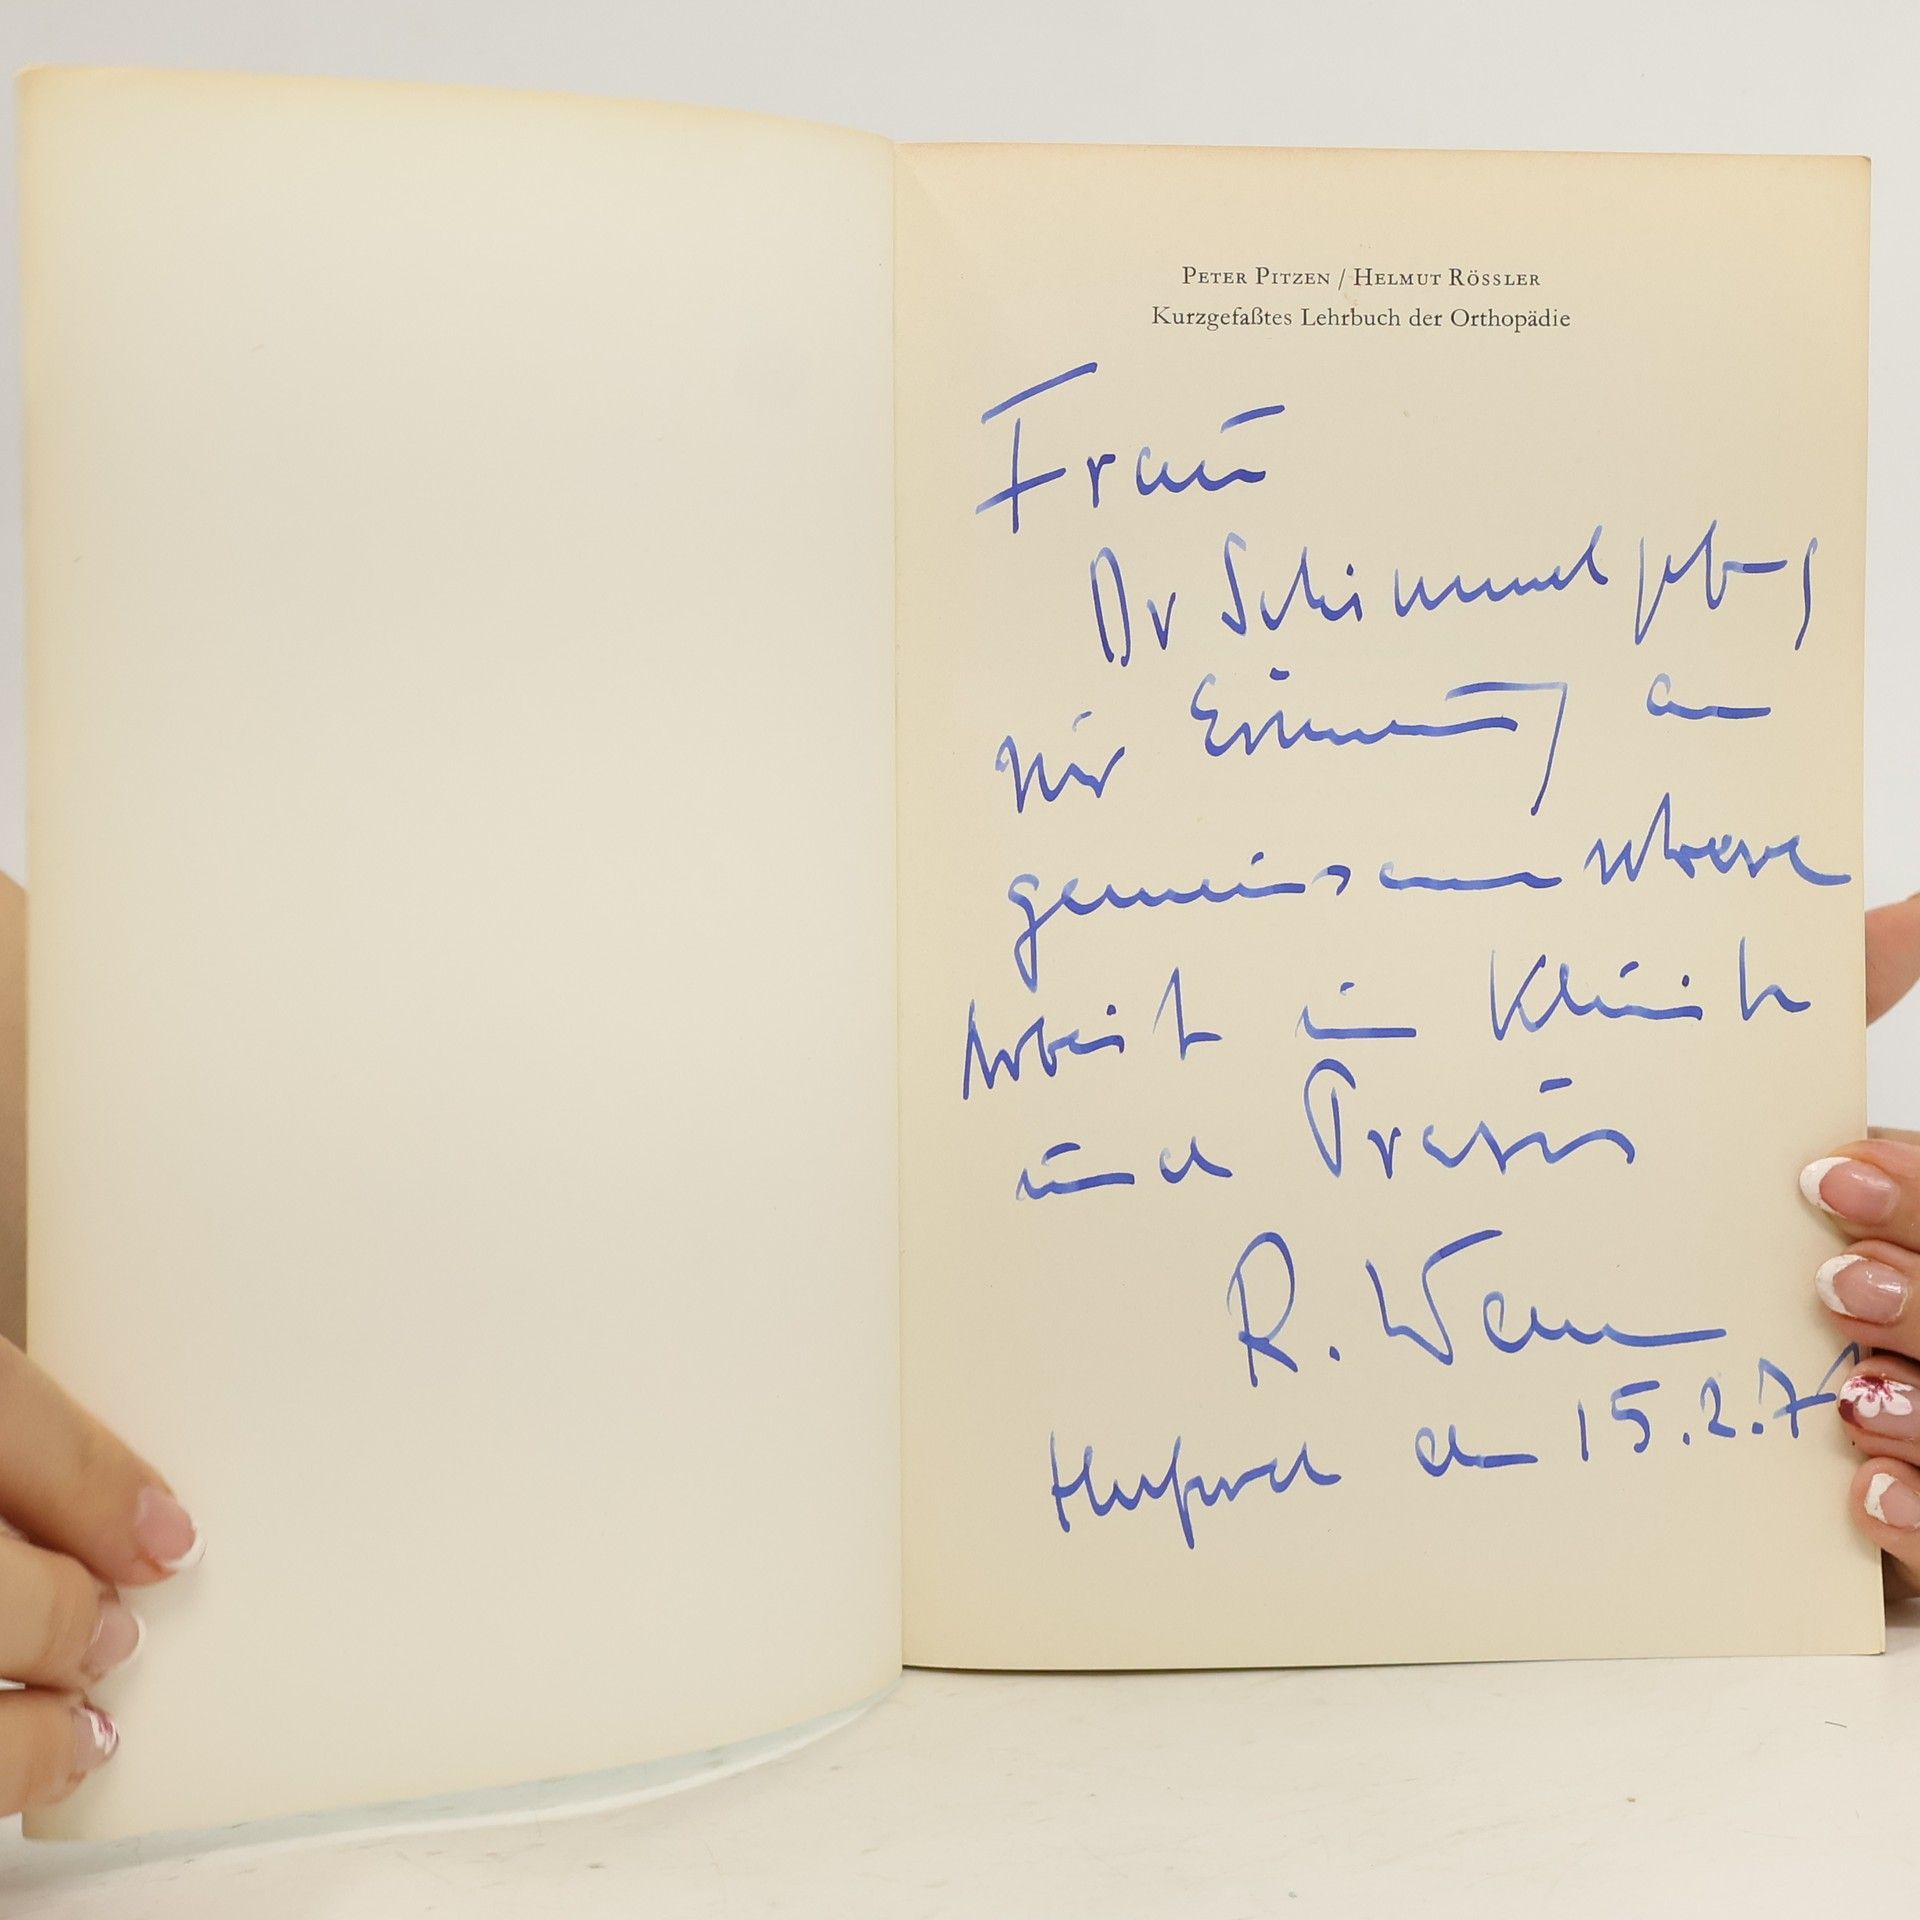 PETER PITZEN / HELMUT RÖSSLER
Kurzgefaßtes Lehrbuch der Orthopädie
Frau
Dr
zur Erinnerung an
gemeinsame schwere
Arbeit in Klinik
und Praxis
R.
den 15.2.71